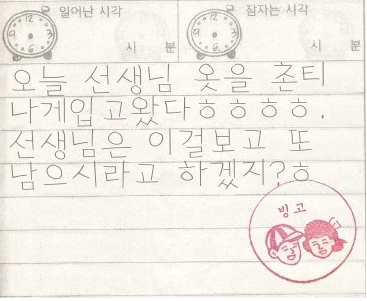 일어난 시각 잠자는 시각
시 분 시 분
오늘 선생님 옷을 촌티
나게입고왔다ㅎㅎㅎㅎ.
선생님은 이걸보고 또
남으시라고 하겠지?ㅎ
빙고